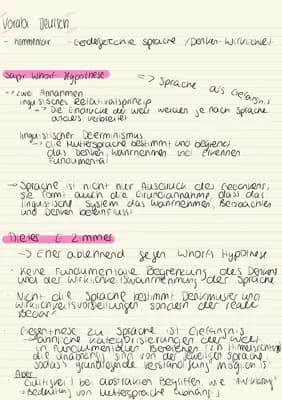 Vorabi Deutsch
- Kommentar - Gendergerechte Sprache / Denken-Wirklichkeit
Sapir Whorf Hypothese => Sprache als Gefängnis
-> zwei Annahmen
linguistisches Relativitätsprinzip
-> Die Eindrücke der Welt werden je nach Sprache
anders verarbeitet
linguistischer Determinismus
-> Die Muttersprache bestimmt und begrenzt
das Denken, Wahrnehmen und Erkennen
Fundamental
-> Sprache ist nicht nur Ausdruck des
sie formt auch die Grundannahme, dass das
linguistische System das Wahrnehmen, Beobachten
und Denken beeinflusst
Dieter E Zimmer
-> Eher ablehnend gegen Whorfs Hypothese
· Keine Fundamentale Begrenzung des Denkens
und der Wirklichkeitswahrnehmung der Sprache
· Nicht die Sprache bestimmt Denkmuster und
Wirklichkeitsvorstellungen sondern der reale
Bedarf
· Gegenthese zu Sprache ist Gefängnis
-> ähnliche Kategorisierungen der Welt
in Fundamentalen Bereichen
die unabhängig sind von der jeweiligen Sprache,
sodass grundlegende Verständigung möglich ist
Aber
Gültigkeit bei abstrakten Begriffen, wie
-> Bedeutung von Muttersprache abhängig